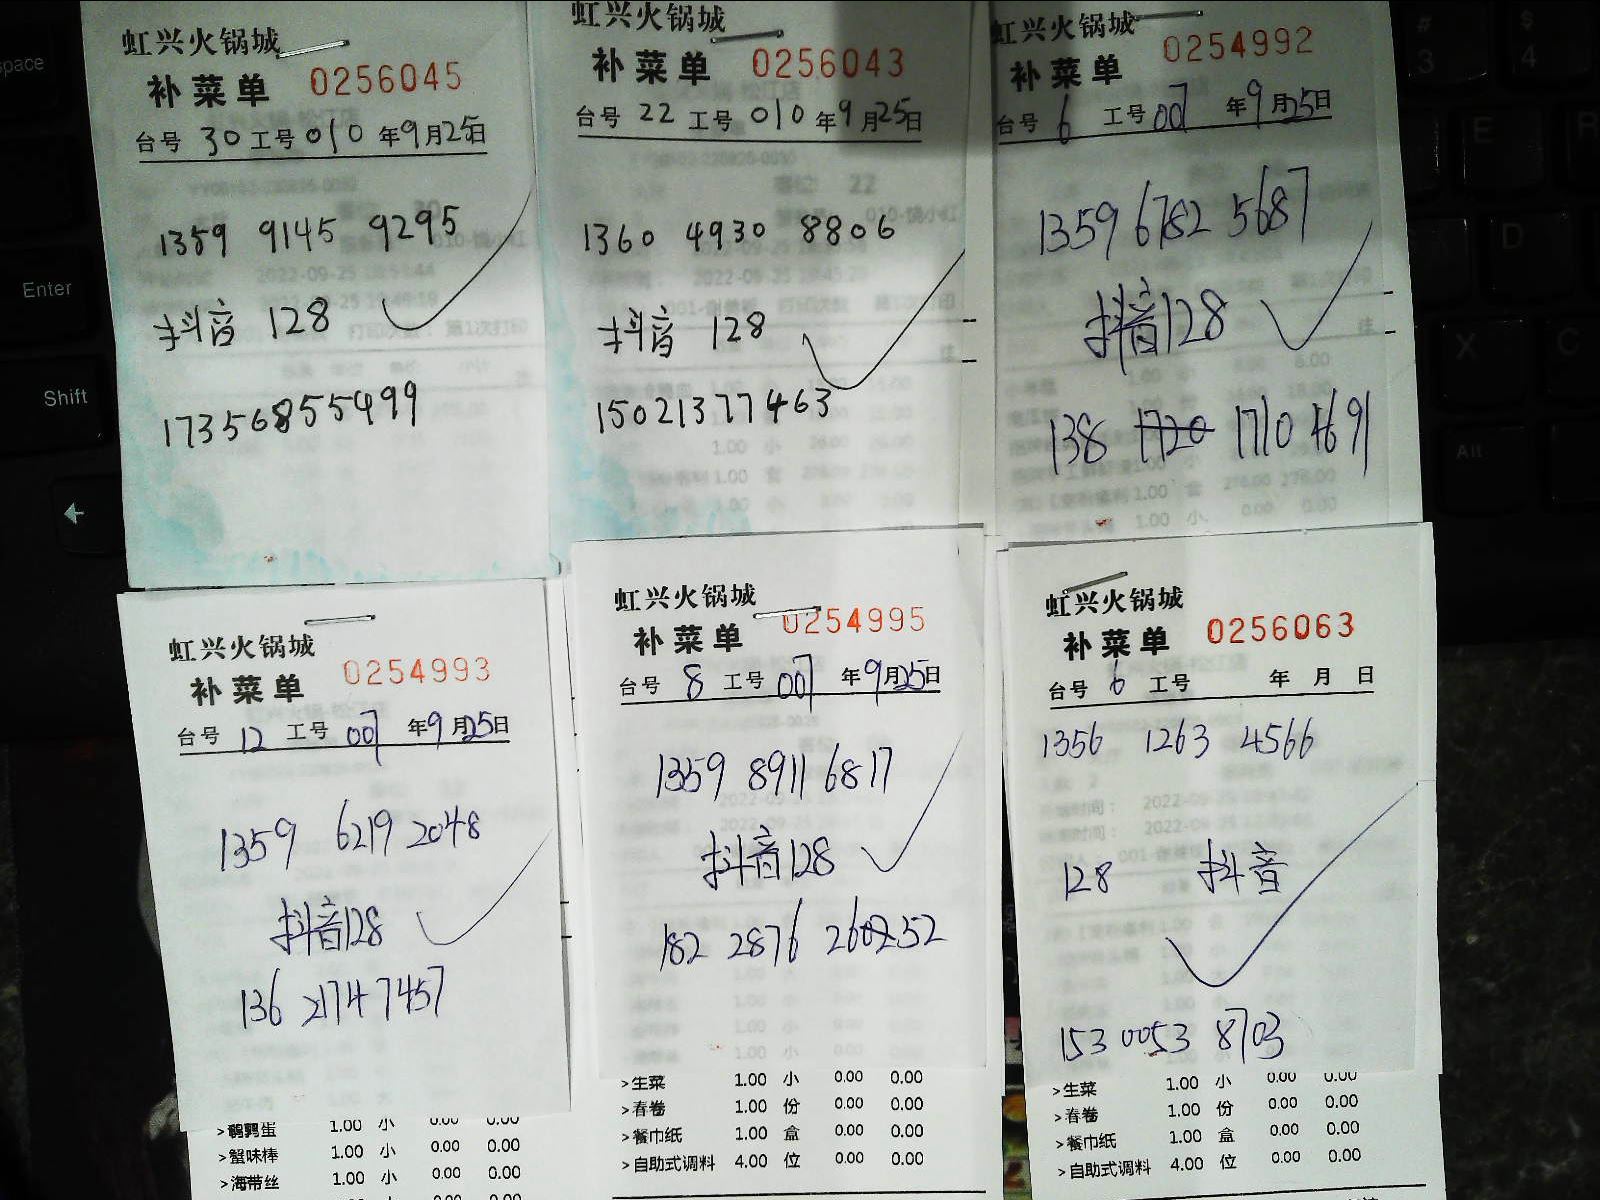 虹兴火锅城
补菜单 0256045
台号 30 工号 010 年 9 月 25 日
1359 9145 9295
抖音 128
17356855499
虹兴火锅城
补菜单 0256043
台号 22 工号 010 年 9 月 25 日
1360 4930 8806
抖音 128
15021377463
虹兴火锅城
补菜单 0254992
台号 6 工号 007 年 9 月 25 日
1359 6782 5687
抖音128
138 1720 1710 4691
虹兴火锅城
补菜单 0254993
台号 12 工号 007 年 9 月 25 日
1359 6219 2048
抖音128
136 2174 7457
>鹌鹑蛋 1.00 小 0.00 0.00
>蟹味棒 1.00 小 0.00 0.00
>海带丝 1.00 小 0.00 0.00
虹兴火锅城
补菜单 0254995
台号 8 工号 007 年 9 月 25 日
1359 8911 6817
抖音128
182 2876
>生菜 1.00 小 0.00 0.00
>春卷 1.00 份 0.00 0.00
>餐巾纸 1.00 盒 0.00 0.00
>自助式调料 4.00 位 0.00 0.00
虹兴火锅城
补菜单 0256063
台号 6 工号 年 月 日
1356 1263 4566
128 抖音
153 0053 8703
>生菜 1.00 小 0.00 0.00
>春卷 1.00 份 0.00 0.00
>餐巾纸 1.00 盒 0.00 0.00
>自助式调料 4.00 位 0.00 0.00
space
Enter
Shift
#
3
$
4
E
R
D
X
C
Alt